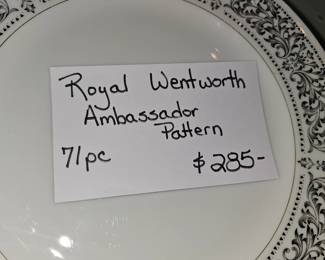 Royal Wentworth
Ambassador
Pattern
71pc $285-